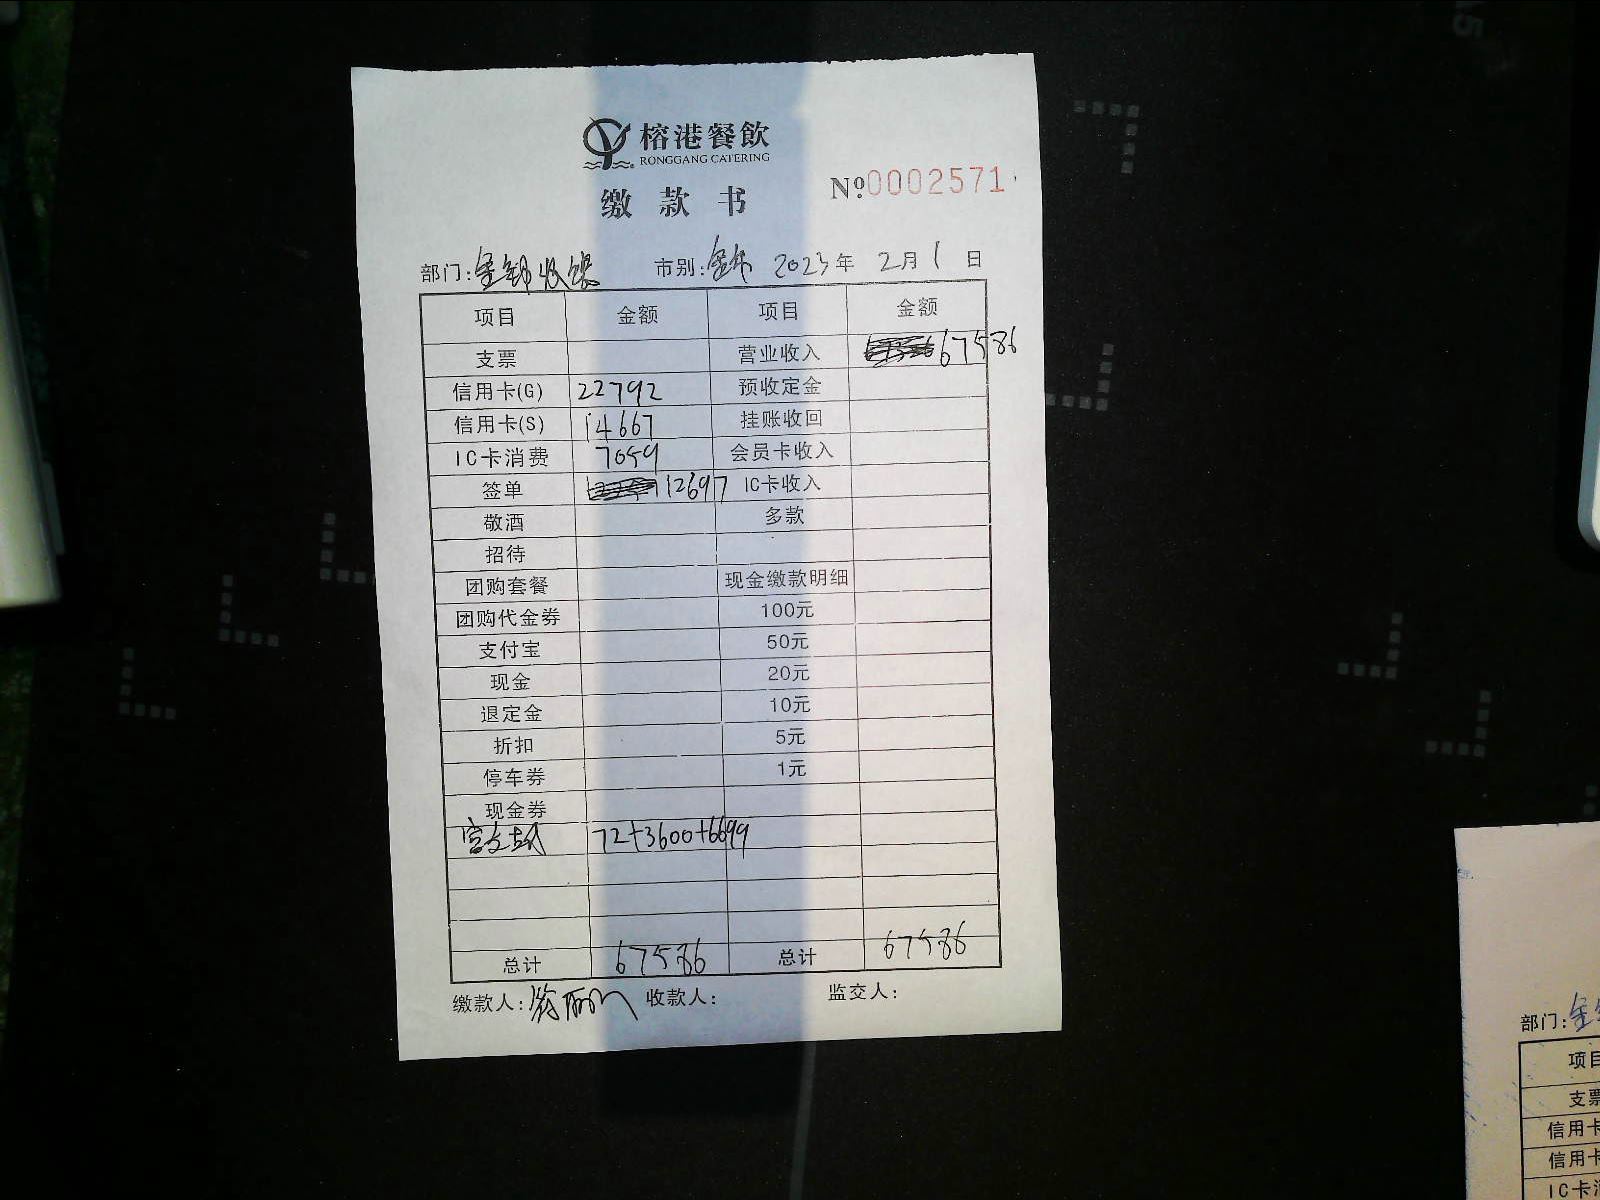 榕港餐飲
RONGGANG CATERING
缴款书
Nº 0002571
部门:金锦收银 市别:全市 2023年 2月 1日
项目 金额 项目 金额
支票 营业收入 67586
信用卡(G) 22792 预收定金
信用卡(S) 14667 挂账收回
IC卡消费 7059 会员卡收入
签单 12697 IC卡收入
敬酒 多款
招待
团购套餐 现金缴款明细
团购代金券 100元
支付宝 50元
现金 20元
退定金 10元
折扣 5元
停车券 1元
现金券
72+3600+6699
总计 67586 总计 67586
缴款人: 收款人: 监交人:
部门:
项目
支票
信用卡
信用卡
IC卡